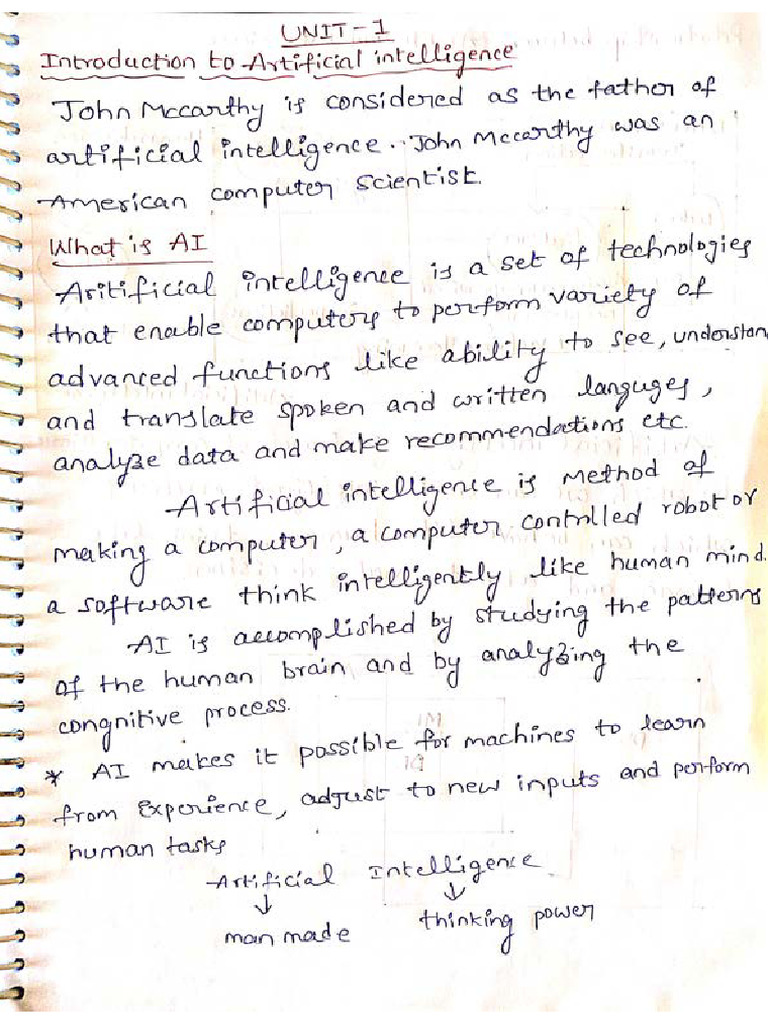 UNIT-1
Introduction to Artificial intelligence
John Mccarthy is considered as the father of
artificial intelligence. John Mccarthy was an
American computer Scientist.
What is AI
Aritificial intelligence is a set of technologies
that enable computers to perform variety of
advanced functions like ability to see, understan
and translate spoken and written languges,
analyze data and make recommendations etc.
Artificial intelligence is method of
making a computer, a computer controlled robot or
a software think intelligently like human mind.
AI is accomplished by studying the patterns
of the human brain and by analyzing the
congnitive process.
* AI makes it possible for machines to learn
from experience, adjust to new inputs and perform
human tasks
Artificial Intelligence
↓ ↓
man made thinking power